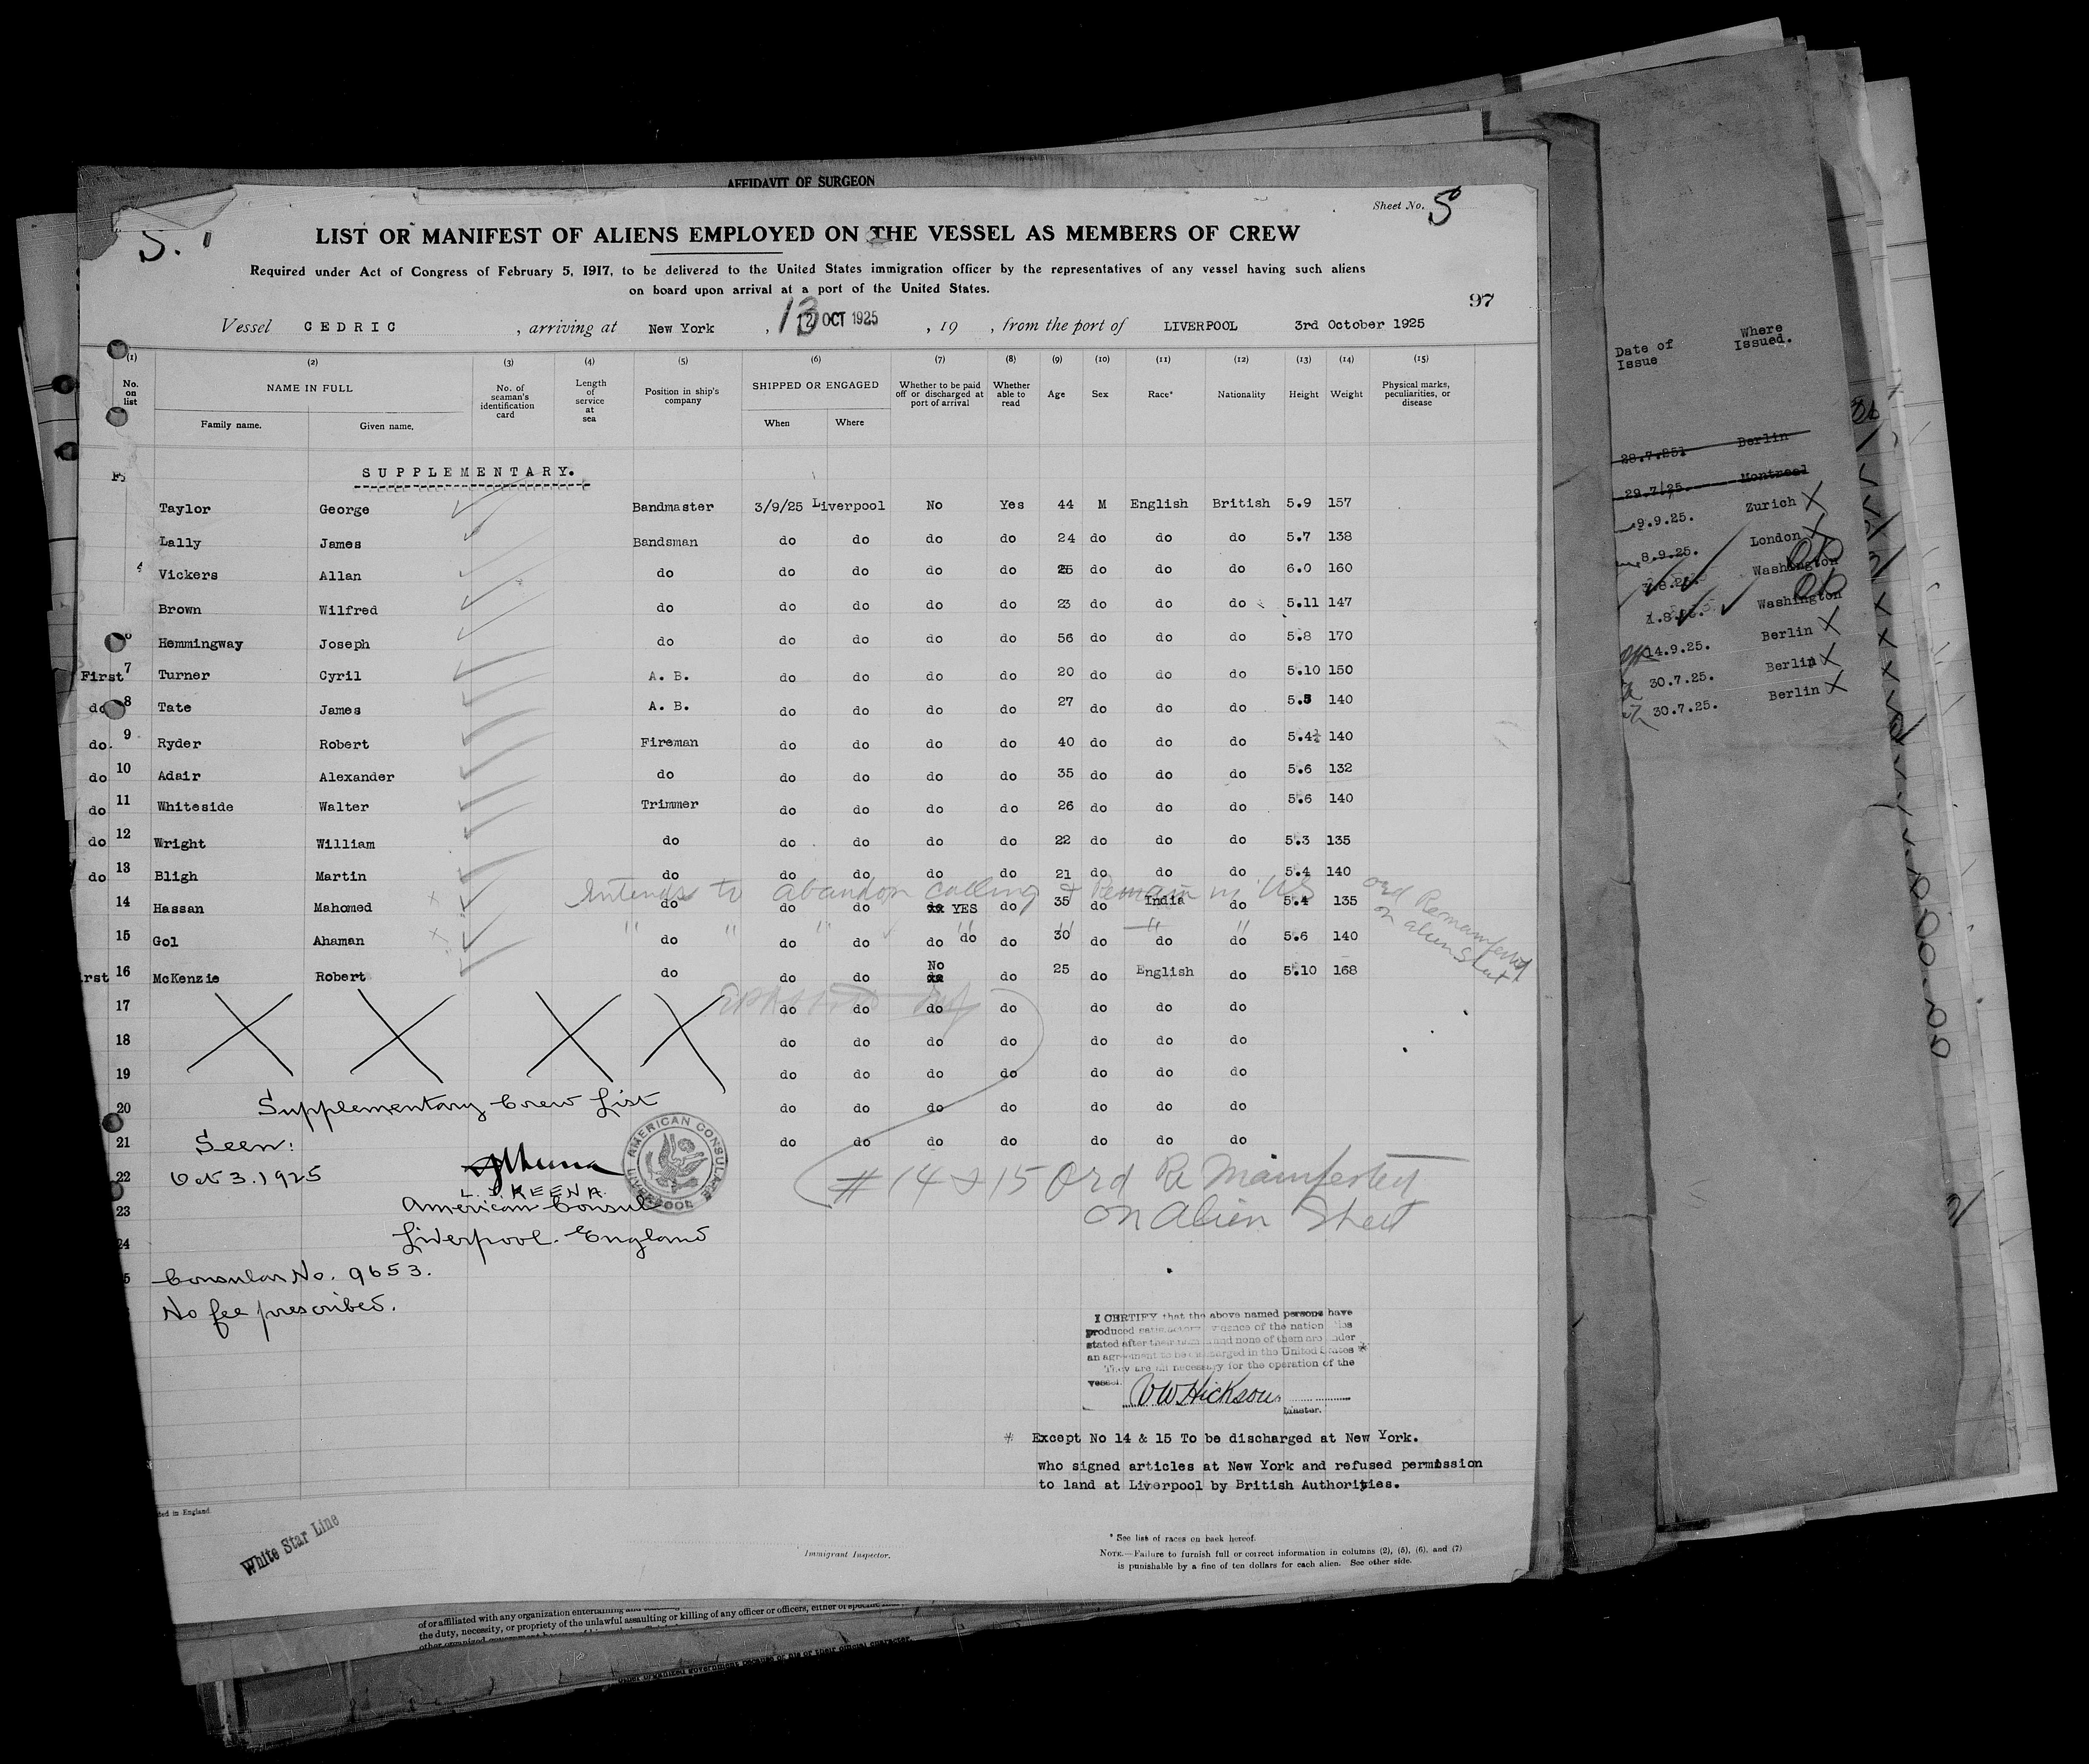 AFFIDAVIT OF SURGEON
Sheet No. 5
S.
LIST OR MANIFEST OF ALIENS EMPLOYED ON THE VESSEL AS MEMBERS OF CREW
Required under Act of Congress of February 5, 1917, to be delivered to the United States immigration officer by the representatives of any vessel having such aliens
on board upon arrival at a port of the United States.
97
Vessel CEDRIC , arriving at New York , 13 OCT 1925 , 19 , from the port of LIVERPOOL 3rd October 1925
(1) (2) (3) (4) (5) (6) (7) (8) (9) (10) (11) (12) (13) (14) (15)
No. on list NAME IN FULL Family name. Given name. No. of seaman's identification card Length of service at sea Position in ship's company SHIPPED OR ENGAGED When Where Whether to be paid off or discharged at port of arrival Whether able to read Age Sex Race* Nationality Height Weight Physical marks, peculiarities, or disease
SUPPLEMENTARY.
Taylor George Bandmaster 3/9/25 Liverpool No Yes 44 M English British 5.9 157
Lally James Bandsman do do do do 24 do do do 5.7 138
Vickers Allan do do do do do 25 do do do 6.0 160
Brown Wilfred do do do do do 23 do do do 5.11 147
Hemmingway Joseph do do do do do 56 do do do 5.8 170
First 7 Turner Cyril A. B. do do do do 20 do do do 5.10 150
do 8 Tate James A. B. do do do do 27 do do do 5.5 140
do. 9 Ryder Robert Fireman do do do do 40 do do do 5.4½ 140
do 10 Adair Alexander do do do do do 35 do do do 5.6 132
do 11 Whiteside Walter Trimmer do do do do 26 do do do 5.6 140
do 12 Wright William do do do do do 22 do do do 5.3 135
do 13 Bligh Martin do do do do do 21 do do do 5.4 140
Intends to abandon calling & Remain in US
14 Hassan Mahomed do do do do YES do 35 do India do 5.4 135
Ord Remanifested
on alien Sheet
" " " " " " "
15 Gol Ahaman do do do do do do 30 do do do 5.6 140
rst 16 McKenzie Robert do do do No do 25 do English do 5.10 168
17 do do do do do do do
18 do do do do do do do
19 do do do do do do do
20 do do do do do do do
21 do do do do do do do
Supplementary Crew List
Seen:
22 Oct 3. 1925
L. J. KEENA.
23 American Consul
24 Liverpool. England
AMERICAN CONSULATE
Consular No. 9653.
No fee prescribed.
# 14 & 15 Ord Re Manifested
on Alien Sheet
I CERTIFY that the above named persons have
produced satisfactory evidence of the
stated after their and none of them are under
an agreement to be discharged in the United States *
They are all necessary for the operation of the
vessel.
Hickson
Master.
* Except No 14 & 15 To be discharged at New York.
who signed articles at New York and refused permission
to land at Liverpool by British Authorities.
ded in England
White Star Line
Immigrant Inspector.
* See list of races on back hereof.
NOTE.—Failure to furnish full or correct information in columns (2), (5), (6), and (7)
is punishable by a fine of ten dollars for each alien. See other side.
of or affiliated with any organization entertaining and
the duty, necessity, or propriety of the unlawful assaulting or killing of any officer or officers, either of specific
other organized government because of his or their official character.
Date of Issue Where Issued.
28.7.25 Berlin
29.7/25. Montreal
9.9.25. Zurich
8.9.25. London
Washington
Washington
14.9.25. Berlin
30.7.25. Berlin
30.7.25. Berlin